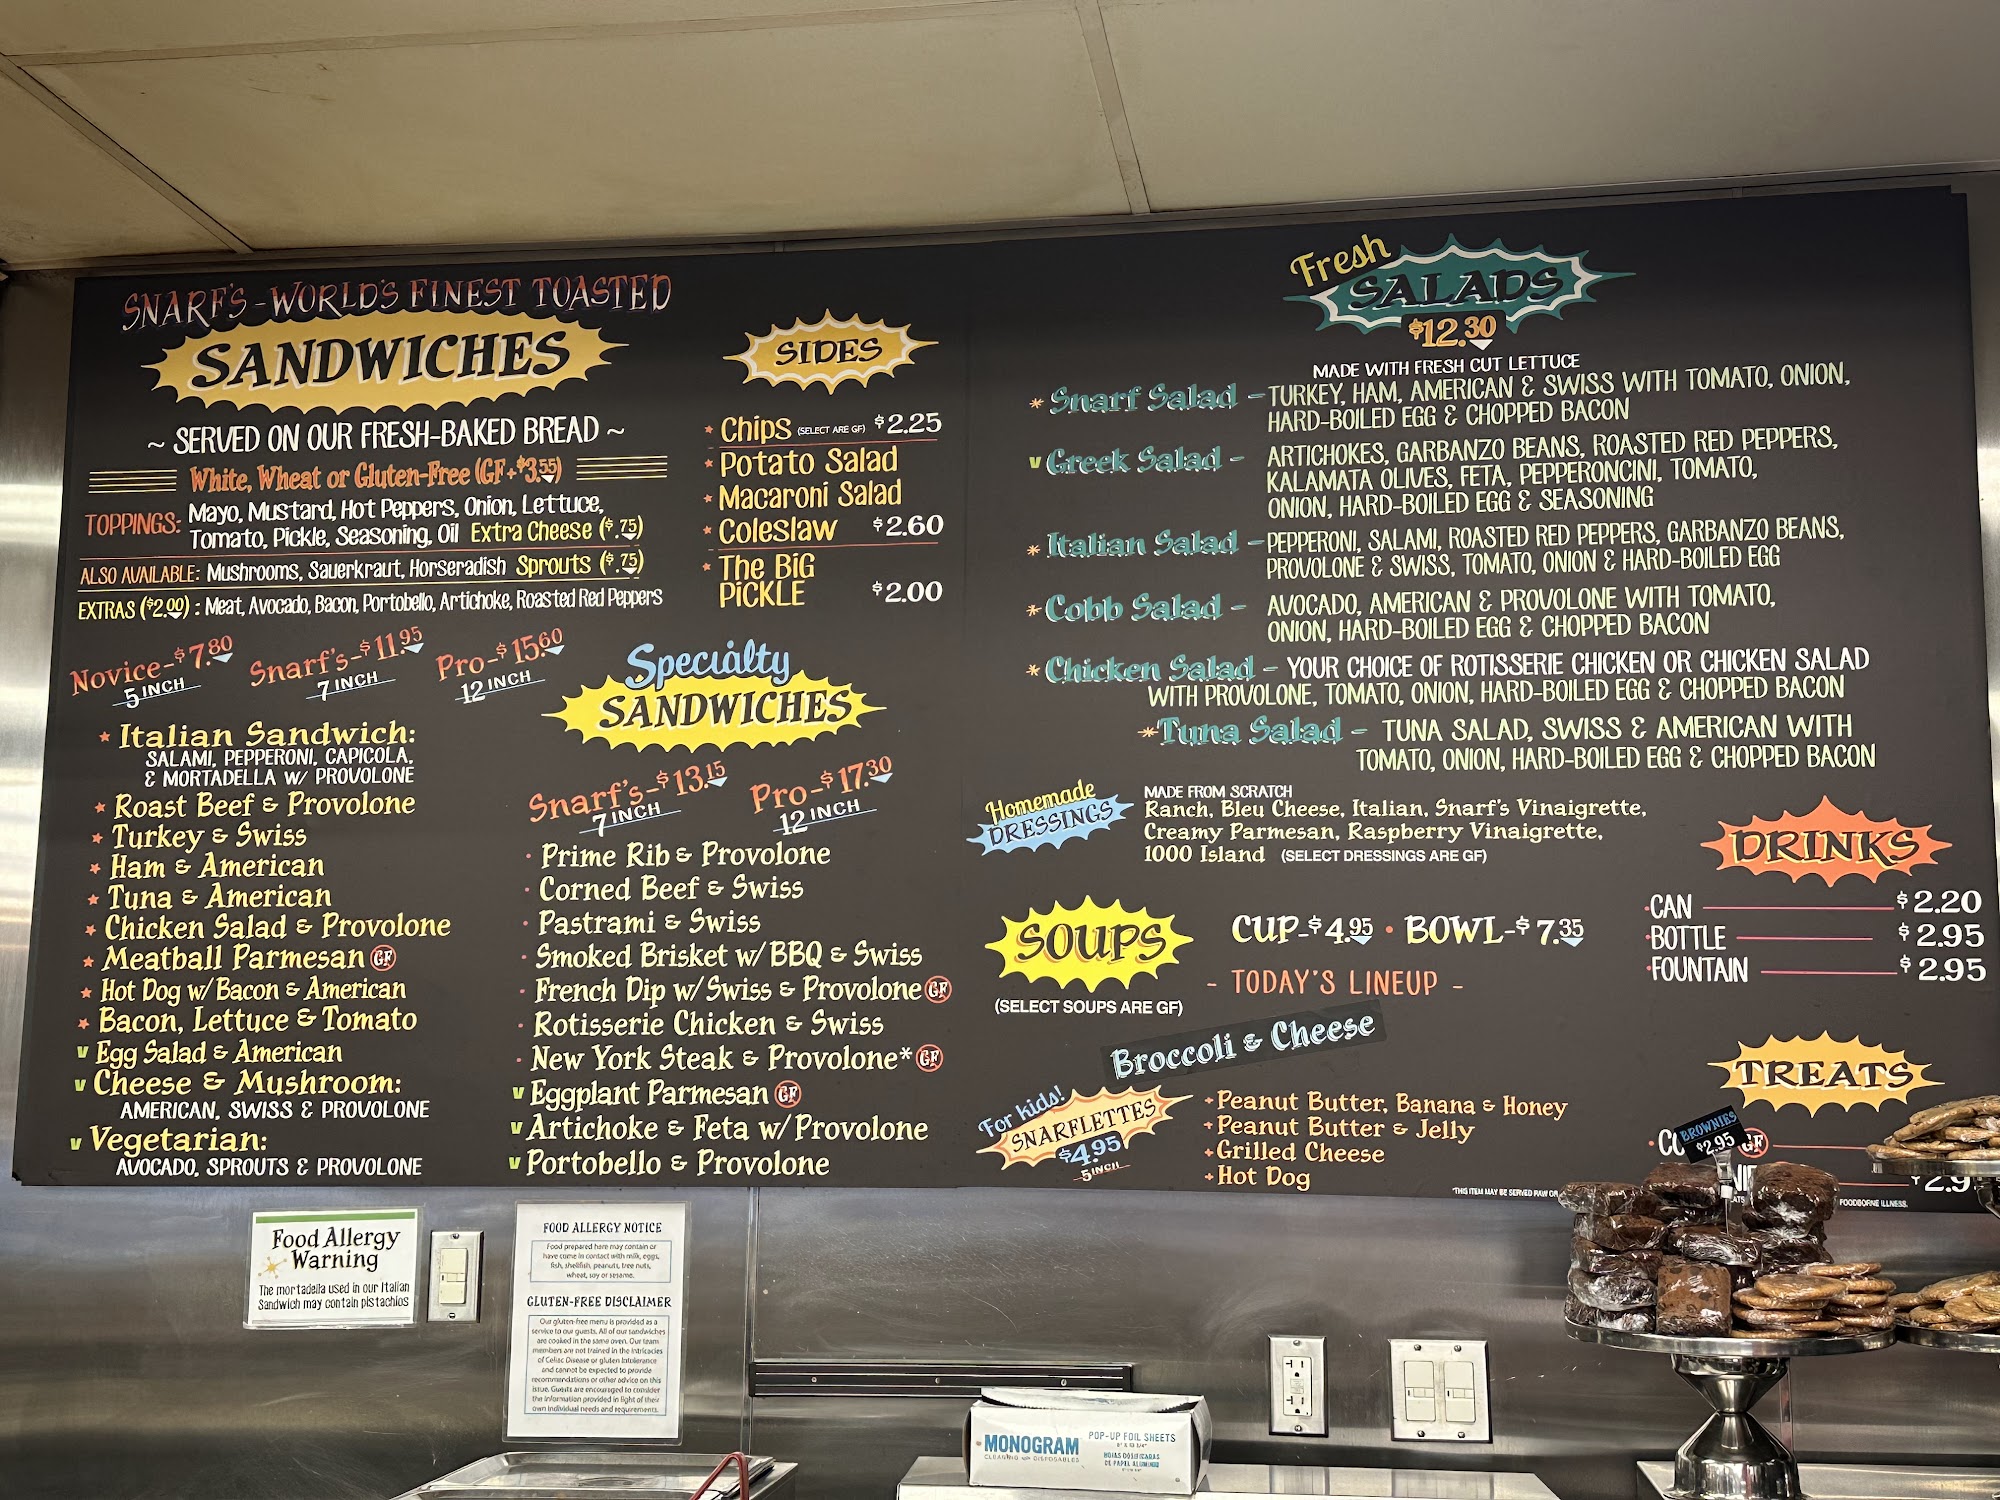 SNARF'S - WORLD'S FINEST TOASTED
SANDWICHES
~ SERVED ON OUR FRESH-BAKED BREAD ~
White, Wheat or Gluten-Free (GF+$3.55)
TOPPINGS: Mayo, Mustard, Hot Peppers, Onion, Lettuce,
Tomato, Pickle, Seasoning, Oil Extra Cheese ($.75)
ALSO AVAILABLE: Mushrooms, Sauerkraut, Horseradish Sprouts ($.75)
EXTRAS ($2.00) : Meat, Avocado, Bacon, Portobello, Artichoke, Roasted Red Peppers
Novice-$7.80
5 INCH
Snarf's-$11.95
7 INCH
Pro-$15.60
12 INCH
* Italian Sandwich:
SALAMI, PEPPERONI, CAPICOLA,
& MORTADELLA W/ PROVOLONE
* Roast Beef & Provolone
* Turkey & Swiss
* Ham & American
* Tuna & American
* Chicken Salad & Provolone
* Meatball Parmesan GF
* Hot Dog w/ Bacon & American
* Bacon, Lettuce & Tomato
V Egg Salad & American
V Cheese & Mushroom:
AMERICAN, SWISS & PROVOLONE
V Vegetarian:
AVOCADO, SPROUTS & PROVOLONE
SIDES
* Chips (SELECT ARE GF) $2.25
* Potato Salad
* Macaroni Salad
* Coleslaw $2.60
* The BiG
PiCKLE $2.00
Specialty
SANDWICHES
Snarf's-$13.15
7 INCH
Pro-$17.30
12 INCH
· Prime Rib & Provolone
· Corned Beef & Swiss
· Pastrami & Swiss
· Smoked Brisket w/ BBQ & Swiss
· French Dip w/ Swiss & Provolone GF
· Rotisserie Chicken & Swiss
· New York Steak & Provolone* GF
V Eggplant Parmesan GF
V Artichoke & Feta w/ Provolone
V Portobello & Provolone
Fresh
SALADS
$12.30
MADE WITH FRESH CUT LETTUCE
* Snarf Salad - TURKEY, HAM, AMERICAN & SWISS WITH TOMATO, ONION,
HARD-BOILED EGG & CHOPPED BACON
V Greek Salad - ARTICHOKES, GARBANZO BEANS, ROASTED RED PEPPERS,
KALAMATA OLIVES, FETA, PEPPERONCINI, TOMATO,
ONION, HARD-BOILED EGG & SEASONING
* Italian Salad - PEPPERONI, SALAMI, ROASTED RED PEPPERS, GARBANZO BEANS,
PROVOLONE & SWISS, TOMATO, ONION & HARD-BOILED EGG
* Cobb Salad - AVOCADO, AMERICAN & PROVOLONE WITH TOMATO,
ONION, HARD-BOILED EGG & CHOPPED BACON
* Chicken Salad - YOUR CHOICE OF ROTISSERIE CHICKEN OR CHICKEN SALAD
WITH PROVOLONE, TOMATO, ONION, HARD-BOILED EGG & CHOPPED BACON
* Tuna Salad - TUNA SALAD, SWISS & AMERICAN WITH
TOMATO, ONION, HARD-BOILED EGG & CHOPPED BACON
Homemade
DRESSINGS
MADE FROM SCRATCH
Ranch, Bleu Cheese, Italian, Snarf's Vinaigrette,
Creamy Parmesan, Raspberry Vinaigrette,
1000 Island (SELECT DRESSINGS ARE GF)
SOUPS
(SELECT SOUPS ARE GF)
CUP-$4.95 · BOWL-$7.35
- TODAY'S LINEUP -
Broccoli & Cheese
For kids!
SNARFLETTES
$4.95
5 INCH
+Peanut Butter, Banana & Honey
+Peanut Butter & Jelly
+Grilled Cheese
+Hot Dog
DRINKS
·CAN $2.20
·BOTTLE $2.95
·FOUNTAIN $2.95
TREATS
BROWNIES
$2.95
GF
*THIS ITEM MAY BE SERVED RAW OR
FOODBORNE ILLNESS.
Food Allergy
Warning
The mortadella used in our Italian
Sandwich may contain pistachios
FOOD ALLERGY NOTICE
Food prepared here may contain or
have come in contact with milk, eggs,
fish, shellfish, peanuts, tree nuts,
wheat, soy or sesame.
GLUTEN-FREE DISCLAIMER
Our gluten-free menu is provided as a
service to our guests. All of our sandwiches
are cooked in the same oven. Our team
members are not trained in the intricacies
of Celiac Disease or gluten intolerance
and cannot be expected to provide
recommendations or other advice on this
issue. Guests are encouraged to consider
the information provided in light of their
own individual needs and requirements.
MONOGRAM
CLEANING DISPOSABLES
POP-UP FOIL SHEETS
HOJAS DOSIFICABAS
DE PAPEL ALUMINIO